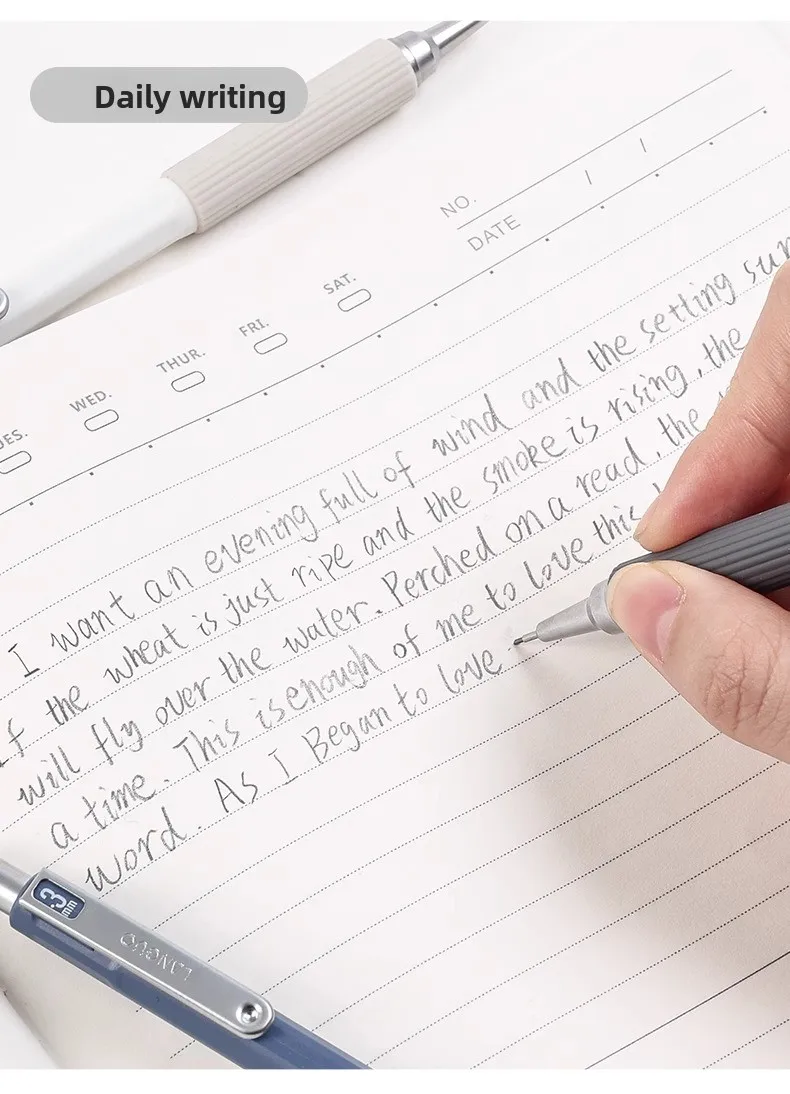 Daily writing
NO.
DATE / /
UES. WED. THUR. FRI. SAT.
I want an evening full of wind and the setting sun
If the wheat is just ripe and the smoke is rising, the
will fly over the water. Perched on a read, the
a time. This is enough of me to love this
word. As I Began to love
.3 mm